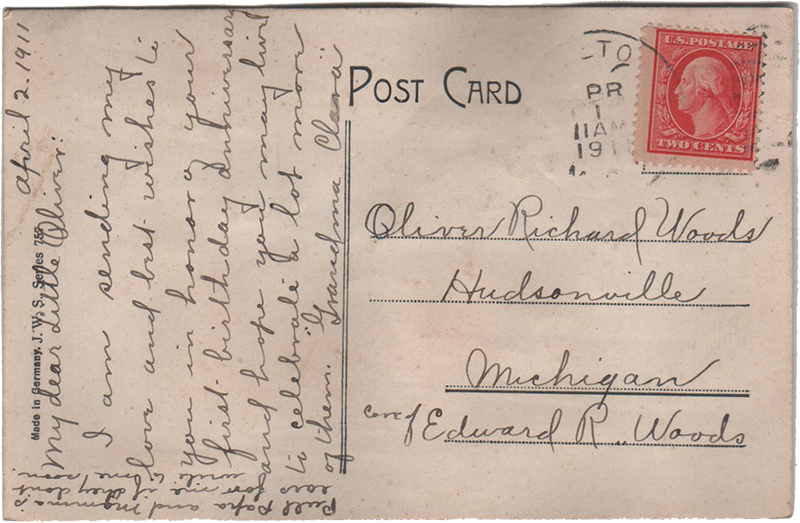 POST CARD
U.S. POSTAGE
TWO CENTS
-TO
PR
1
11 AM
191
Oliver Richard Woods
Hudsonville
Michigan
care of Edward R. Woods
Made in Germany. J. W. S. Series 757.
April 2. 1911
My dear Little Oliver:
I am sending my
love and best wishes to
you in honor of your
first birthday anniversary
and hope you may live
to celebrate a lot more
of them. Grandma Clara
Pull Papa and Mamma's
ears for me if they dont
write to me soon.